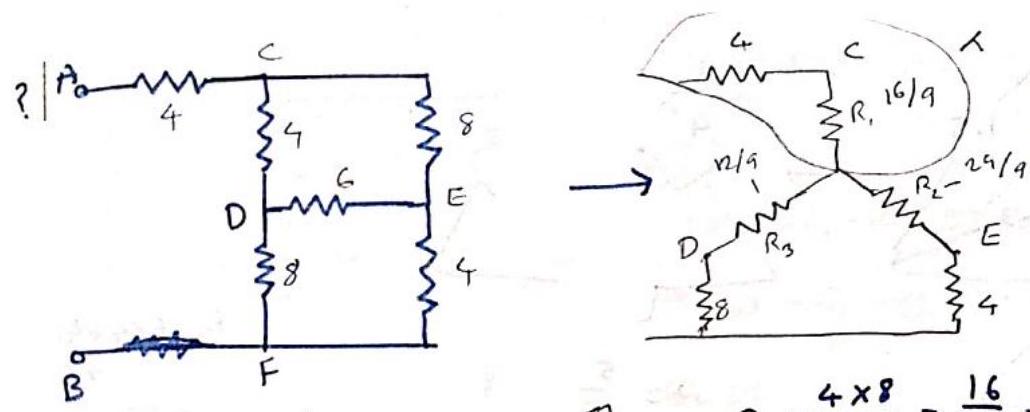 ? A
4
C
4
8
6
D
E
8
4
B
F
4
C
R₁ 16/9
12/9
R₂ - 24/9
R₃
D
E
8
4
4 × 8
16